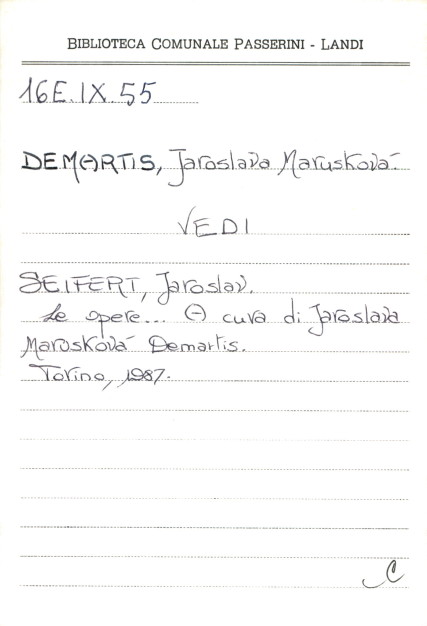 BIBLIOTECA COMUNALE PASSERINI - LANDI
16E.IX.55
DEMARTIS, Jaroslava Marusková.
VEDI
SEIFERT, Jaroslav.
Le opere... A cura di Jaroslava
Marusková Demartis.
Torino, 1987.
C